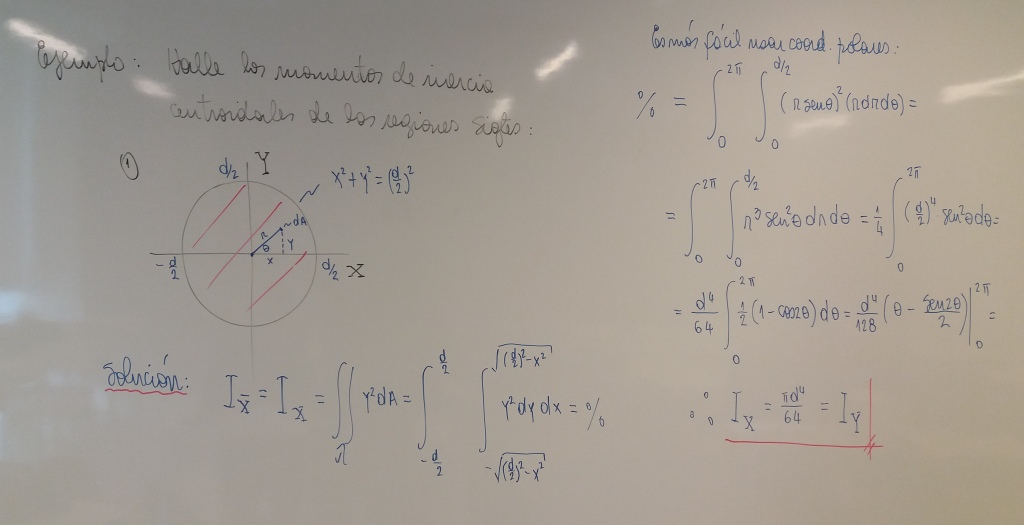 Ejemplo: Halle los momentos de inercia
centroidales de las regiones sigtes:
①
d/2 Y
x² + y² = (d/2)²
dA
r
θ
y
x
-d/2
d/2 X
Solución: I_x̄ = I_x = ∬_R y² dA = ∫_{-d/2}^{d/2} ∫_{-√((d/2)²-x²)}^{√((d/2)²-x²)} y² dy dx = %
Es más fácil usar coord. polares:
% = ∫_0^{2π} ∫_0^{d/2} (r senθ)² (r dr dθ) =
= ∫_0^{2π} ∫_0^{d/2} r³ sen²θ dr dθ = 1/4 ∫_0^{2π} (d/2)⁴ sen²θ dθ =
= d⁴/64 ∫_0^{2π} 1/2 (1 - cos2θ) dθ = d⁴/128 (θ - sen2θ/2) |_0^{2π} =
∴ I_X̄ = πd⁴/64 = I_Ȳ